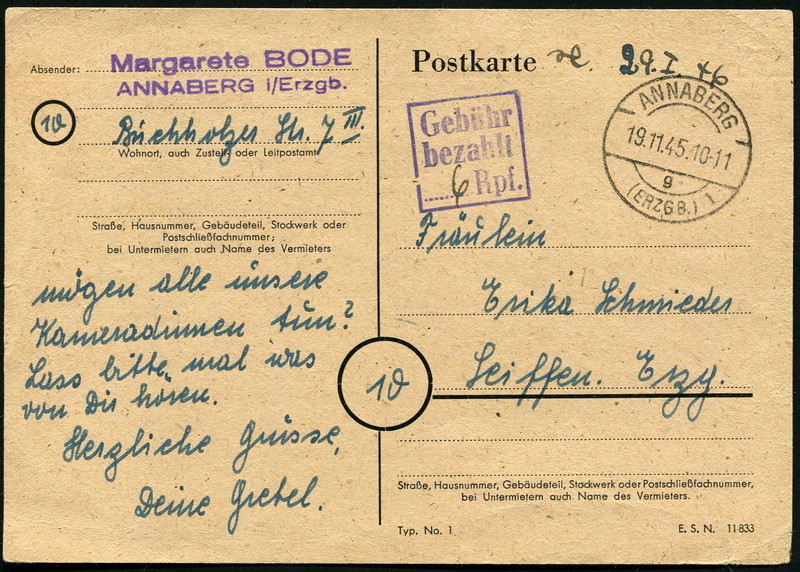 Absender:
Margarete BODE
ANNABERG i/Erzgb.
Buchholzer Str. 7 III.
Wohnort, auch Zustell- oder Leitpostamt
Straße, Hausnummer, Gebäudeteil, Stockwerk oder
Postschließfachnummer;
bei Untermietern auch Name des Vermieters
mögen alle unsere
Kameradinnen tun?
Lass bitte mal was
von Dir hören.
Herzliche Grüsse,
Deine Gretel.
Postkarte
29.I.46
Gebühr
bezahlt
6 Rpf.
ANNABERG
19.11.45.10-11
g
(ERZGB.) 1
Fräulein
Erika Schmieder
Seiffen. Erzg.
Straße, Hausnummer, Gebäudeteil, Stockwerk oder Postschließfachnummer,
bei Untermietern auch Name des Vermieters.
Typ. No. 1
E. S. N. 11833